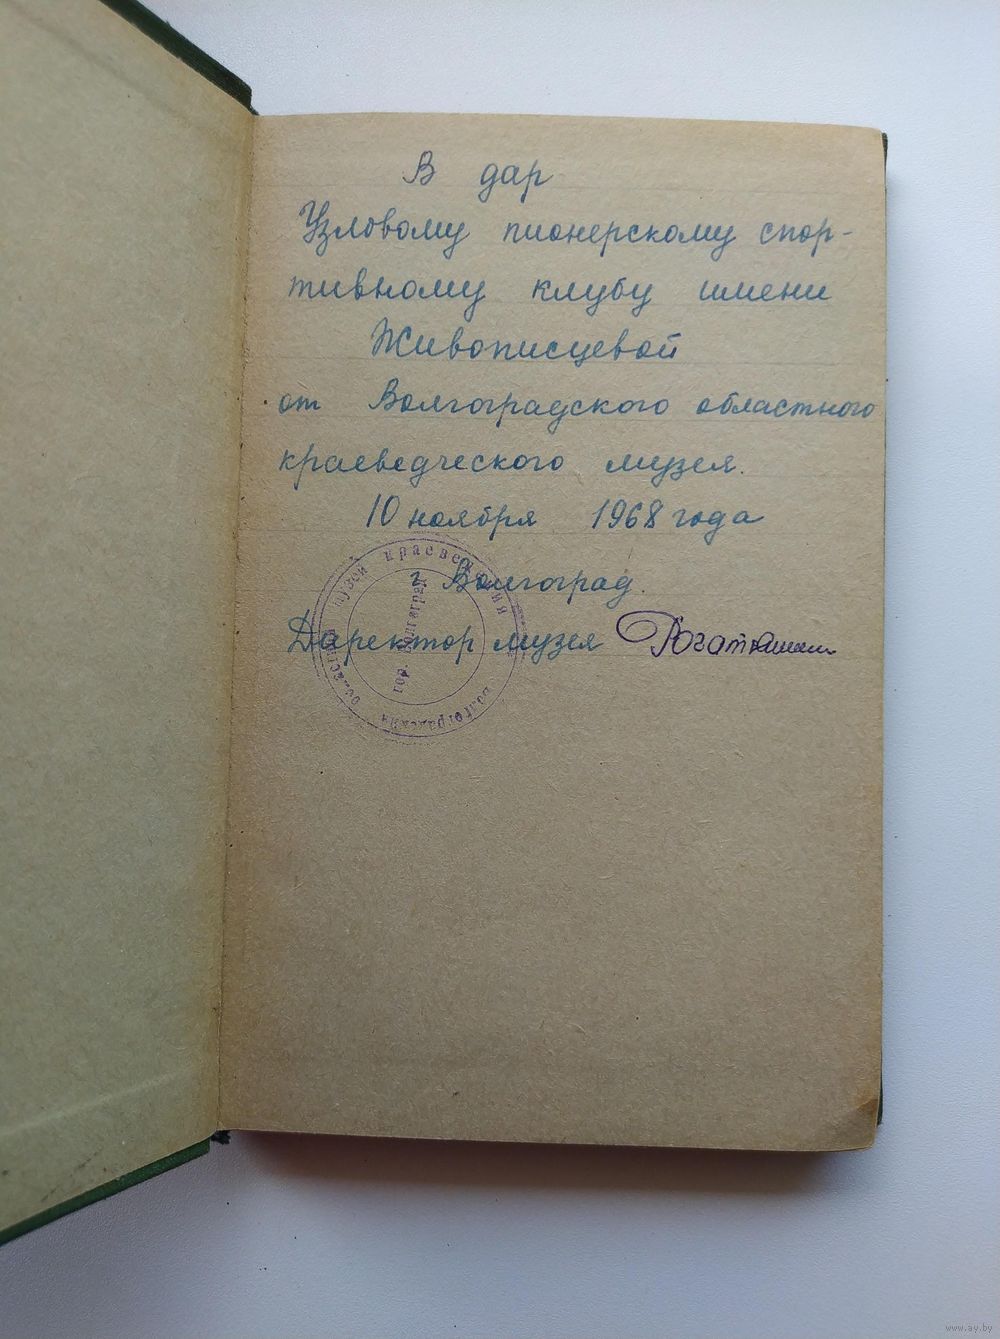 В дар
Узловому пионерскому спор-
тивному клубу имени
Живописцевой
от Волгоградского областного
краеведческого музея.
10 ноября 1968 года
г Волгоград.
Директор музея
Волгоградский областной музей краеведения
гор. Волгоград
www.ay.by